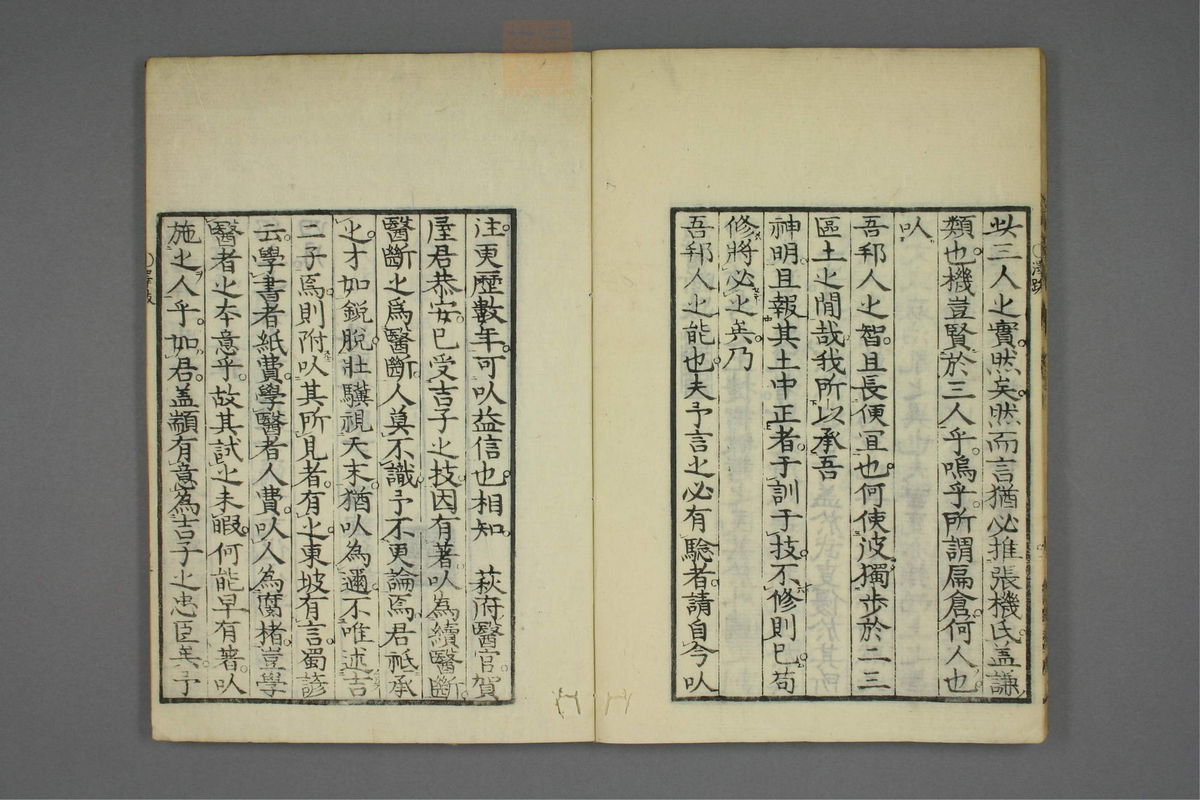 此三人之實然矣然而言猶必推張機氏盖謙
類也機豈賢於三人乎嗚乎所謂扁倉何人也
以
吾邦人之智且長便冝也何使彼獨步於二三
區土之間哉我所以承吾
神明且報其土中正者于訓于技不修則已苟
修將必之矣乃
吾邦人之能也夫予言之必有驗者請自今以
注更歷數年可以益信也相知　萩府醫官賀
屋君恭安已受吉子之技因有著以為續醫斷
醫斷之爲醫斷人莫不識予不更論焉君祗承
之才如鋭脫壯驥視天末猶以為邇不唯述吉
二子焉則附以其所見者有之東坡有言蜀諺
云學書者紙費學醫者人費以人為腐楮豈學
醫者之本意乎故其試之未暇何能早有著以
施之人乎如君盖顓有意為吉子之忠臣矣予